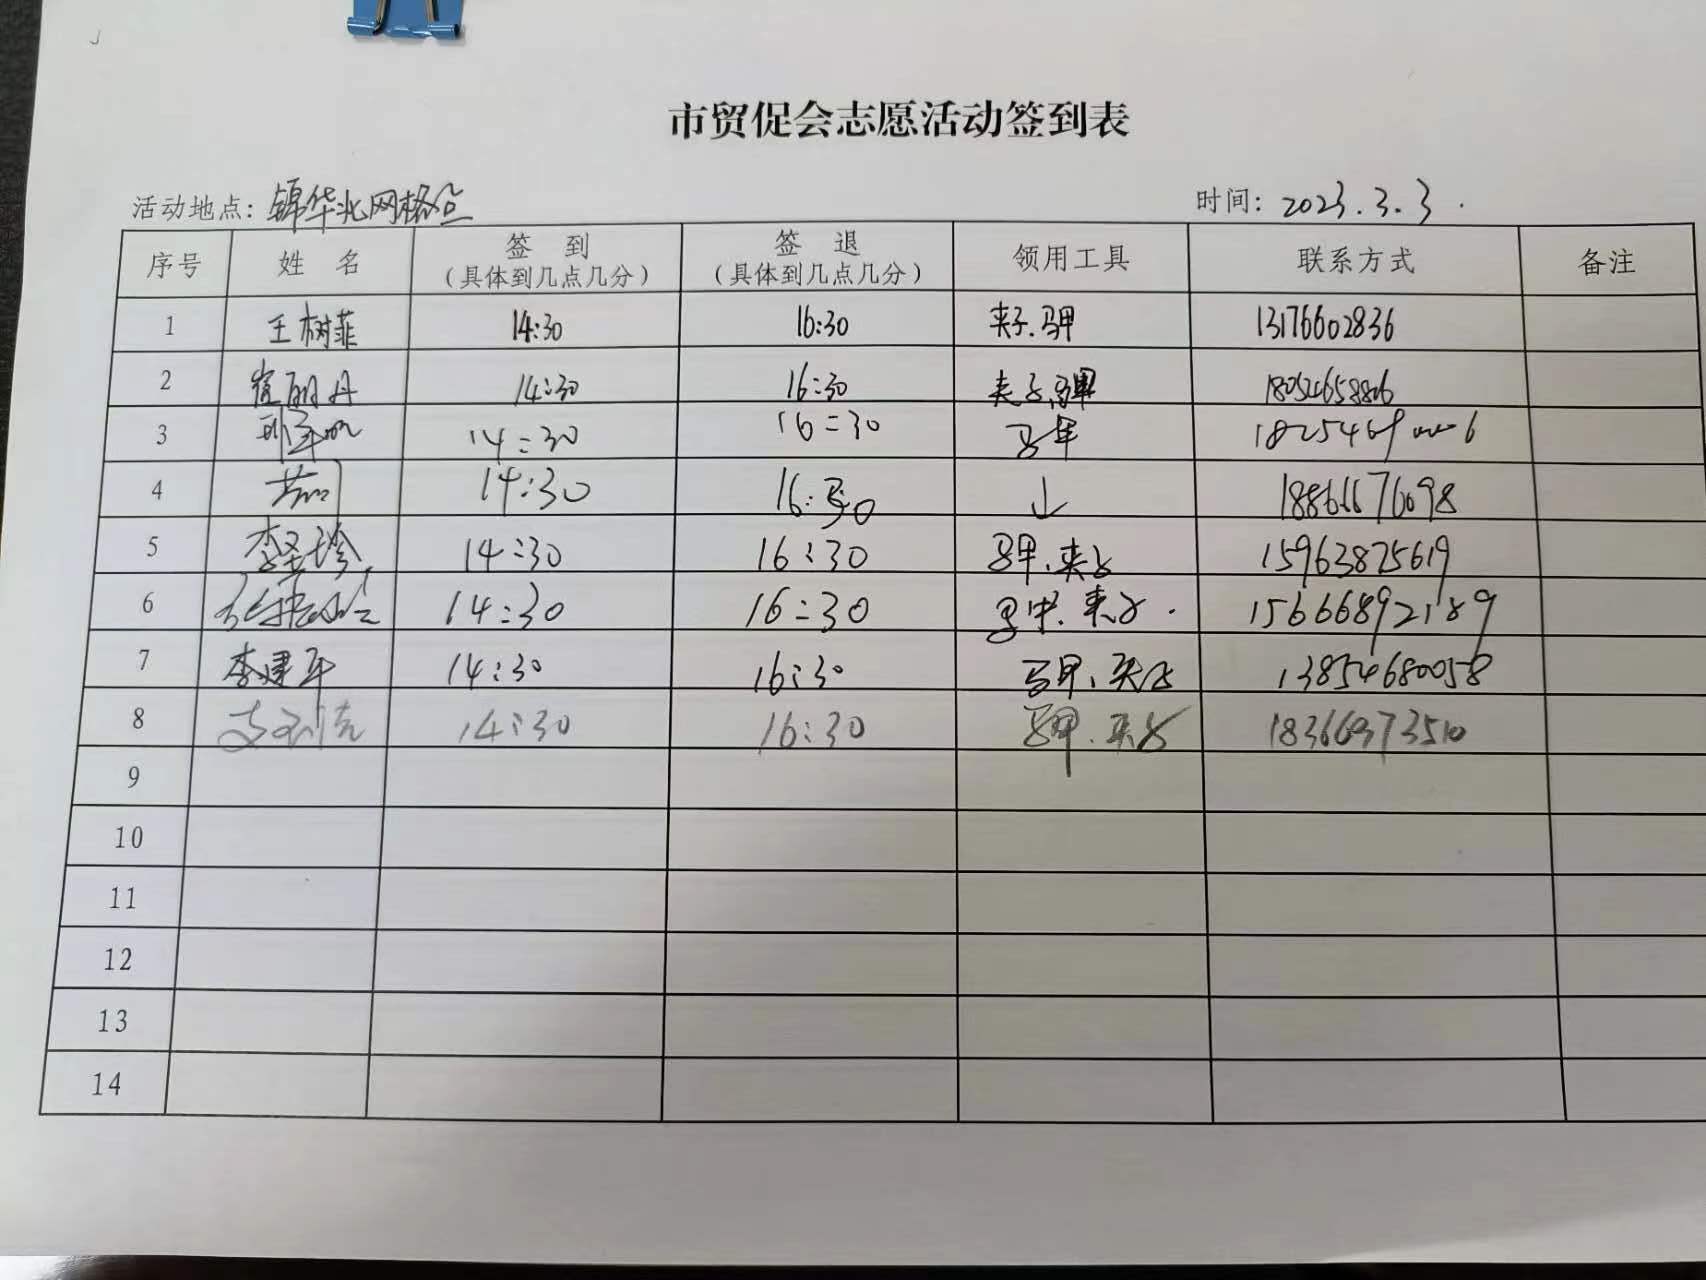 市贸促会志愿活动签到表
活动地点: 锦华北网格 时间: 2023.3.3.
序号 姓 名 签 到 (具体到几点几分) 签 退 (具体到几点几分) 领用工具 联系方式 备注
1 王树菲 14:30 16:30 夹子.马甲 13176602836
2 崔丽丹 14:30 16:30 夹子.马甲
3 14:30 16:30
4 14:30 16:30 ↓ 18866676098
5 李圣珍 14:30 16:30 马甲、夹子 15963825619
6 14:30 16:30 马甲、夹子. 15666892189
7 李建军 14:30 16:30 马甲、夹子 13854680058
8 14:30 16:30 马甲、夹子 18366973510
9
10
11
12
13
14